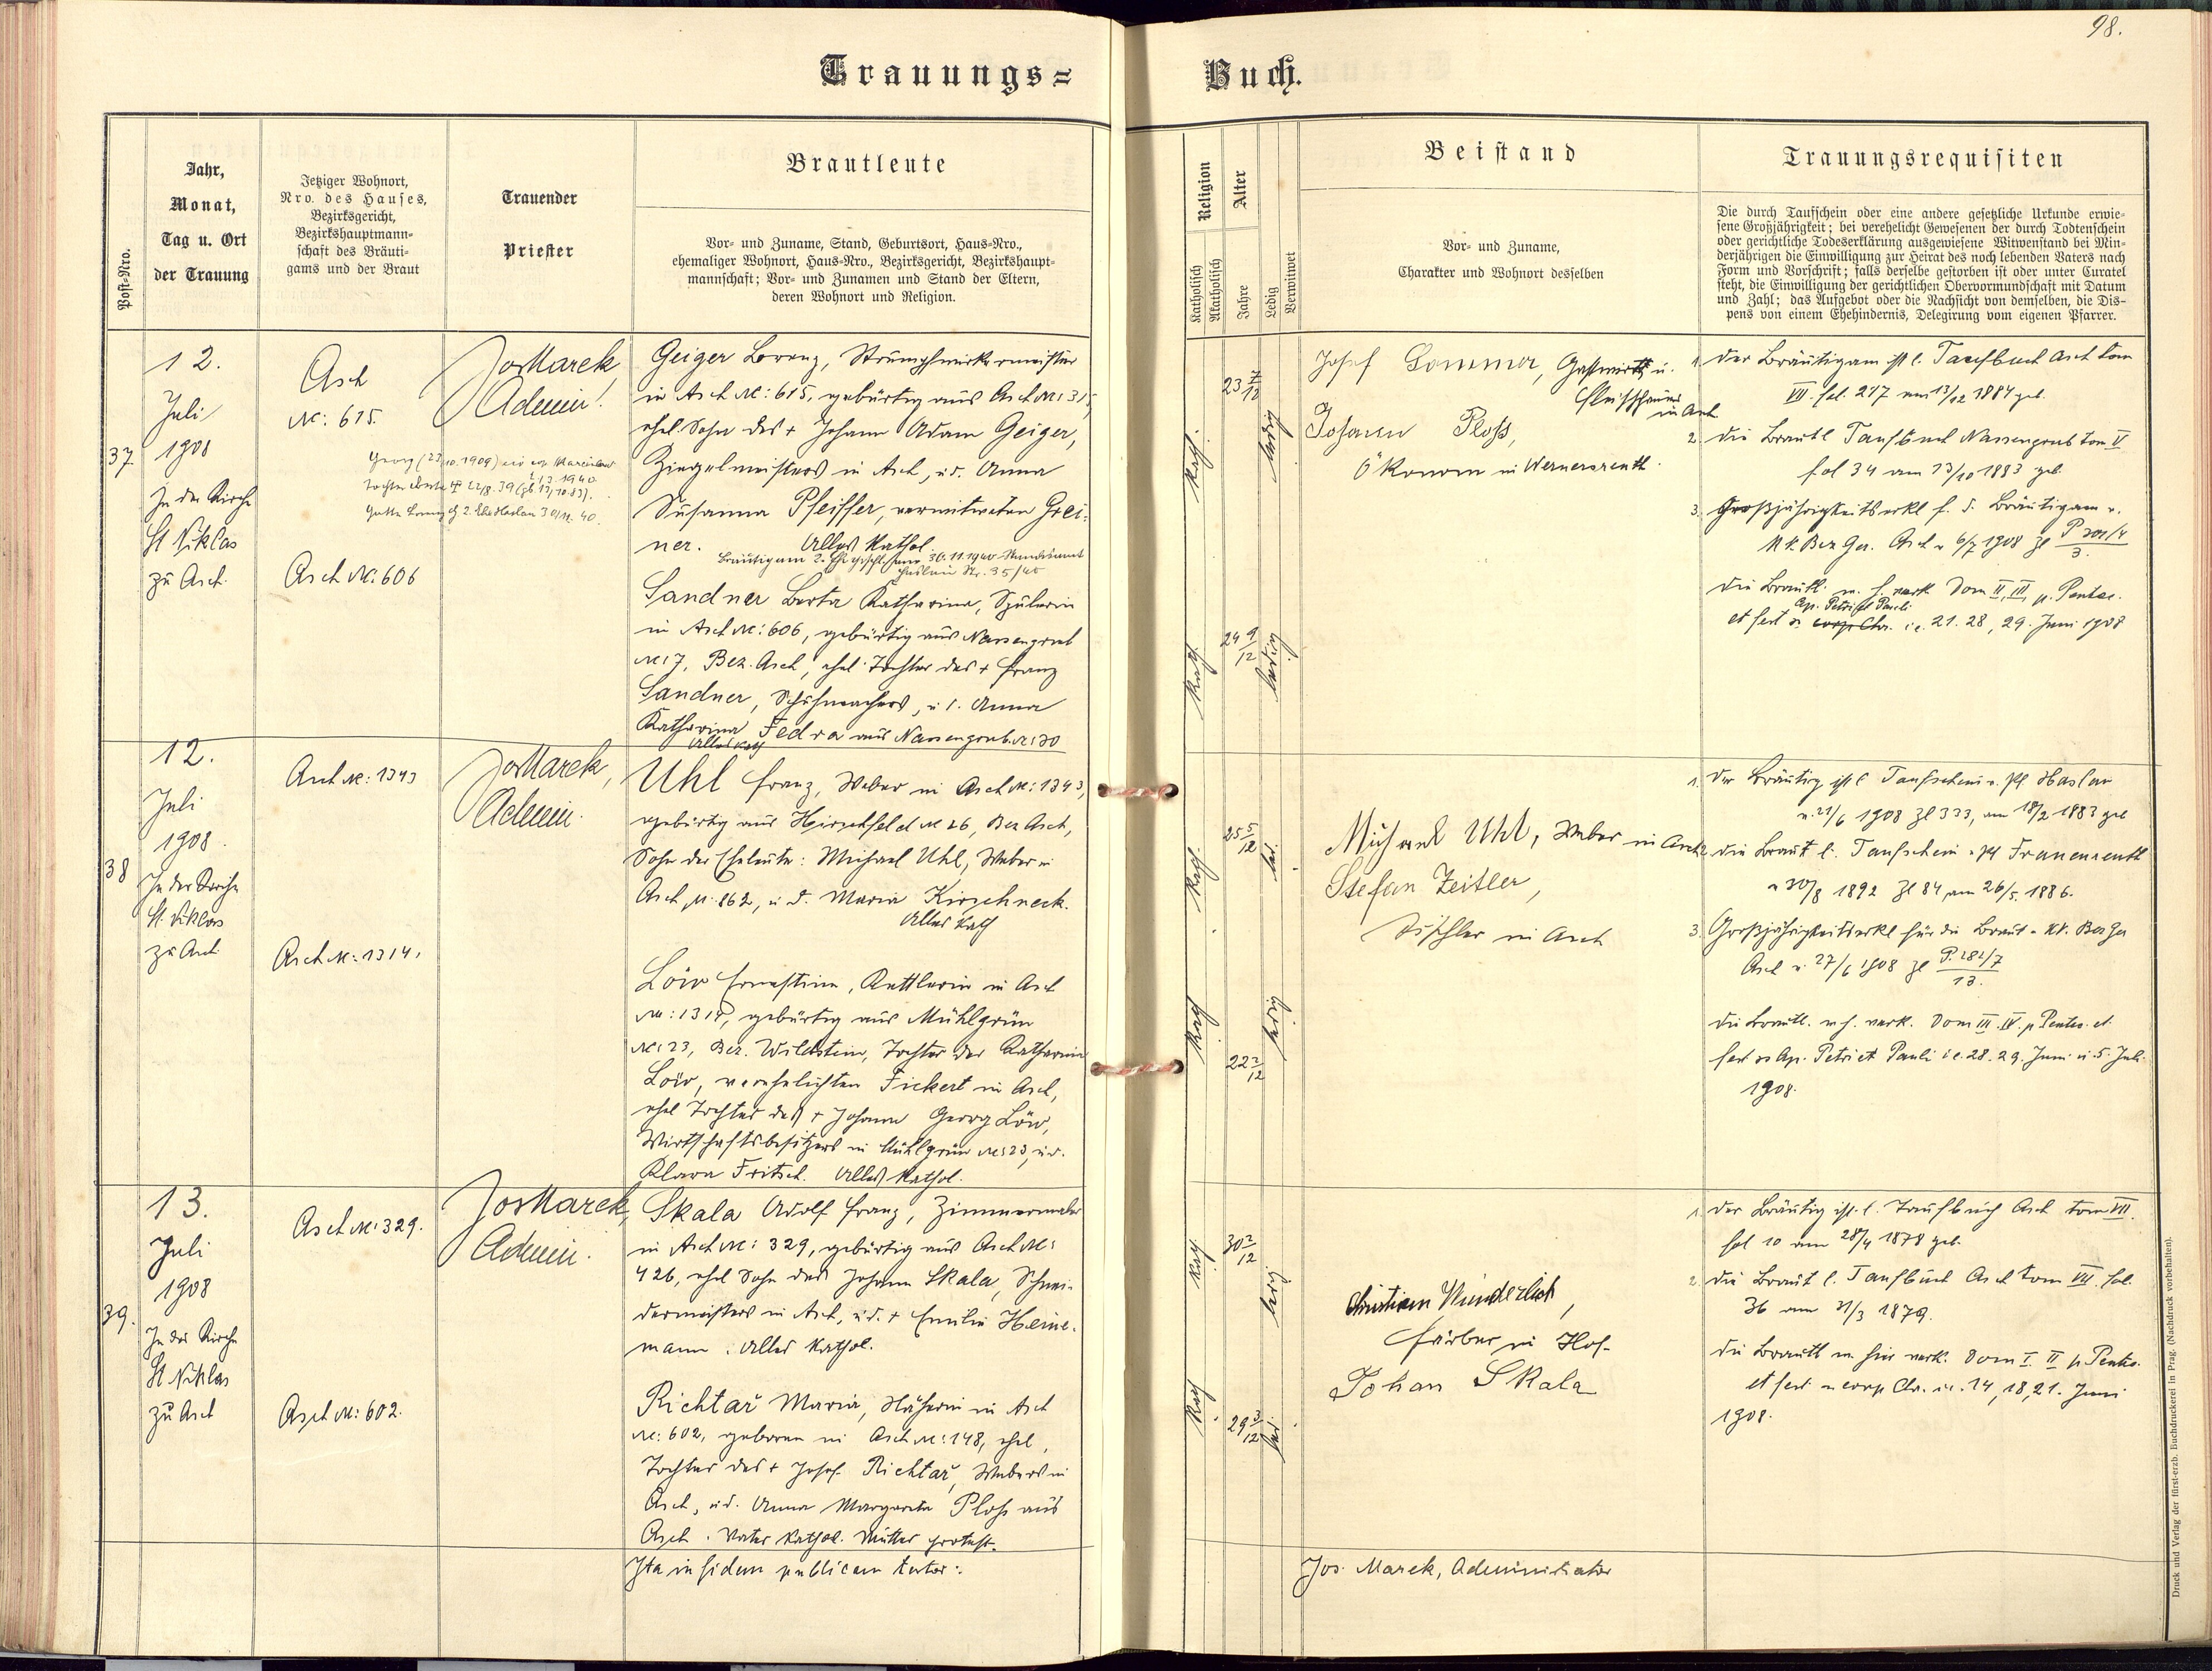 98.
Trauungs=
Buch.
Post-Nro.
Jahr,
Monat,
Tag u. Ort
der Trauung
Jetziger Wohnort,
Nro. des Hauses,
Bezirksgericht,
Bezirkshauptmann-
schaft des Bräuti-
gams und der Braut
Trauender
Priester
Brautleute
Vor- und Zuname, Stand, Geburtsort, Haus-Nro.,
ehemaliger Wohnort, Haus-Nro., Bezirksgericht, Bezirkshaupt-
mannschaft; Vor- und Zunamen und Stand der Eltern,
deren Wohnort und Religion.
Religion
Katholisch
Akatholisch
Alter
Jahre
Ledig
Verwitwet
Beistand
Vor- und Zuname,
Charakter und Wohnort desselben
Trauungsrequisiten
Die durch Taufschein oder eine andere gesetzliche Urkunde erwie-
sene Großjährigkeit; bei verehelicht Gewesenen der durch Todtenschein
oder gerichtliche Todeserklärung ausgewiesene Witwenstand bei Min-
derjährigen die Einwilligung zur Heirat des noch lebenden Vaters nach
Form und Vorschrift; falls derselbe gestorben ist oder unter Curatel
steht, die Einwilligung der gerichtlichen Obervormundschaft mit Datum
und Zahl; das Aufgebot oder die Nachsicht von demselben, die Dis-
pens von einem Ehehindernis, Delegirung vom eigenen Pfarrer.
37
12.
Juli
1908
In der Kirche
St Niklas
zu Asch.
Asch
№: 615.
Asch №: 606
Jos Marek
Admin.
Geiger Lorenz, Strumpfwirkermeister
in Asch №: 615, gebürtig aus Asch №: 315,
ehel. Sohn des + Johann Adam Geiger,
Ziegelmeisters in Asch, u. d. Anna
Susanna Pfeiffer, verwitweten Grei-
ner. Alles Kathol.
Sandner Berta Katharina, Spulerin
in Asch №: 606, gebürtig aus Nassengrub
№: 7, Bez. Asch, ehel. Tochter des + Franz
Sandner, Schuhmachers, u. d. Anna
Katharina Fedra aus Nassengrub №: 30
Alles kath
kath.
23 7/12
ledig
kath.
24 9/12
ledig
Josef Sommer, Gastwirth u.
Fleischhauer
in Asch
Johann Ploß,
Ökonom in Wernersreuth.
1. Der Bräutigam ist l. Taufbuch Asch tom
VII. fol. 217 am 13/12 1884 geb.
2. die Brautl Taufbuch Nassengrub tom V
fol 34 am 13/10 1883 geb
3. Großjährigkeitserkl f. d. Bräutigam v.
K k. Bez Ger. Asch v 6/7 1908 Zl P 201/4
3.
die Brautl. w. h. verk. Dom II, III, p. Pentec.
Ap. Petri et Pauli
et fest ss corp. Chr. i.e. 21. 28, 29. Juni 1908
38
12.
Juli
1908.
In der Kirche
St. Niklas
zu Asch
Asch №: 1343
Asch №: 1314.
Jos Marek,
Admin.
Uhl Franz, Weber in Asch №: 1343,
gebürtig aus Hirschfeld № 26, Bez Asch,
Sohn der Eheleute: Michael Uhl, Weber in
Asch №. 862, u. d. Maria Kirschneck.
Alles kath
Löw Ernestine, Kettlerin in Asch
№: 1314, gebürtig aus Mühlgrün
№: 23, Bez. Wildstein, Tochter der Katharina
Löw, verehelichten Fickert in Asch,
ehel Tochter des + Johann Georg Löw,
Wirtschaftsbesitzers in Mühlgrün №: 23, u. d.
Klara Fritsch. Alles Kathol.
kath.
25 5/12
led.
kath
22 2/12
ledig
Michael Uhl, Weber in Asch
Stefan Zeitler,
Tischler in Asch
1. Der Bräutig ist l Taufschein v. Pf. Haslau
v. 21/6 1908 Zl 333, am 18/2 1883 geb
2. die Braut l. Taufschein v Pf Frauenreuth
v 30/8 1892 Zl 84 am 26/5. 1886.
3. Großjährigkeitserkl für die Braut v. KK. Bez Ger
Asch v. 27/6 1908 Zl P. 181/7
13.
die Brautl. w h. verk. Dom III. IV. p Pentec. et
fest ss Ap. Petri et Pauli i e. 28. 29. Juni u 5. Juli.
1908.
39.
13.
Juli
1908
In der Kirche
St Niklas
zu Asch
Asch №: 329.
Asch №: 602.
Jos Marek,
Admin.
Skala Adolf Franz, Zimmermaler
in Asch №: 329, gebürtig aus Asch №:
426, ehel Sohn des Johann Skala, Schnei-
dermeisters in Asch, u. d. + Emilie Heine-
mann. Alles Kathol.
Richtař Maria, Näherin in Asch
№: 602, geboren in Asch №: 148, ehel.
Tochter des + Josef Richtař, Webers in
Asch, u d. Anna Margareta Ploß aus
Asch. Vater Kathol. Mutter protest.
kath
30 2/12
ledig
kath.
29 3/12
led.
Christian Wunderlich,
Färber in Hof.
Johan Skala
1. Der Bräutig ist. l. Taufbuch Asch tom VII.
fol 10 am 28/4 1878 geb.
2. die Braut l. Taufbuch Asch tom VII. fol.
36 am 31/3 1879.
die Brautl w hier verk. Dom I. II p. Pentec.
et fest ss corp Chr. i.e. 14, 18, 21. Juni
1908.
Ita in fidem publicam testor:
Jos. Marek, Administrator
Druck und Verlag der fürst-erzb. Buchdruckerei in Prag. (Nachdruck vorbehalten).